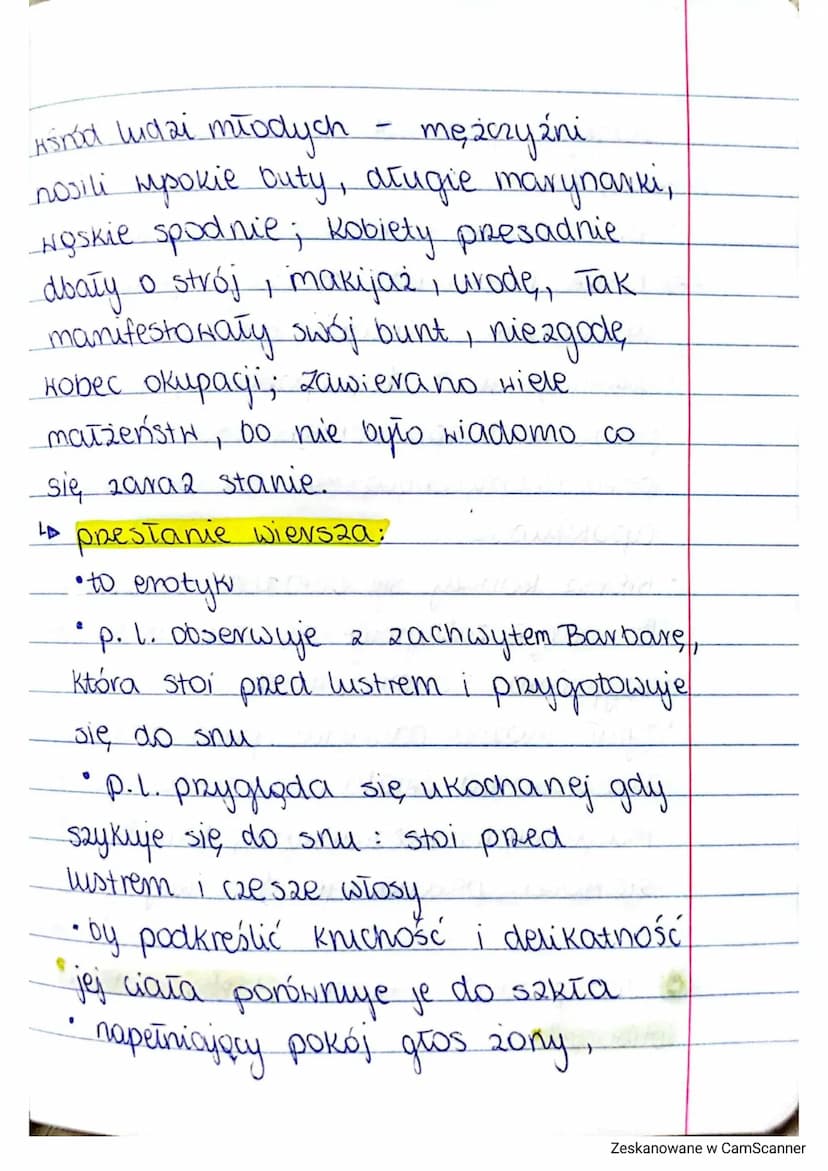 wśród ludzi młodych - mężczyźni
nosili wysokie buty, długie marynarki,
wąskie spodnie; kobiety przesadnie
dbały o strój, makijaż, urodę, Tak
manifestowały swój bunt, niezgodę
wobec okupacji; zawierano wiele
małżeństw, bo nie było wiadomo co
się zaraz stanie.
↳ przesłanie wiersza:
• to erotyk
• p. l. obserwuje z zachwytem Barbarę,
która stoi przed lustrem i przygotowuje
się do snu
• p.l. przygląda się ukochanej gdy
szykuje się do snu: stoi przed
lustrem i czesze włosy
• by podkreślić kruchość i delikatność
jej ciała porównuje je do szkła
• napełniający pokój głos żony,
Zeskanowane w CamScanner